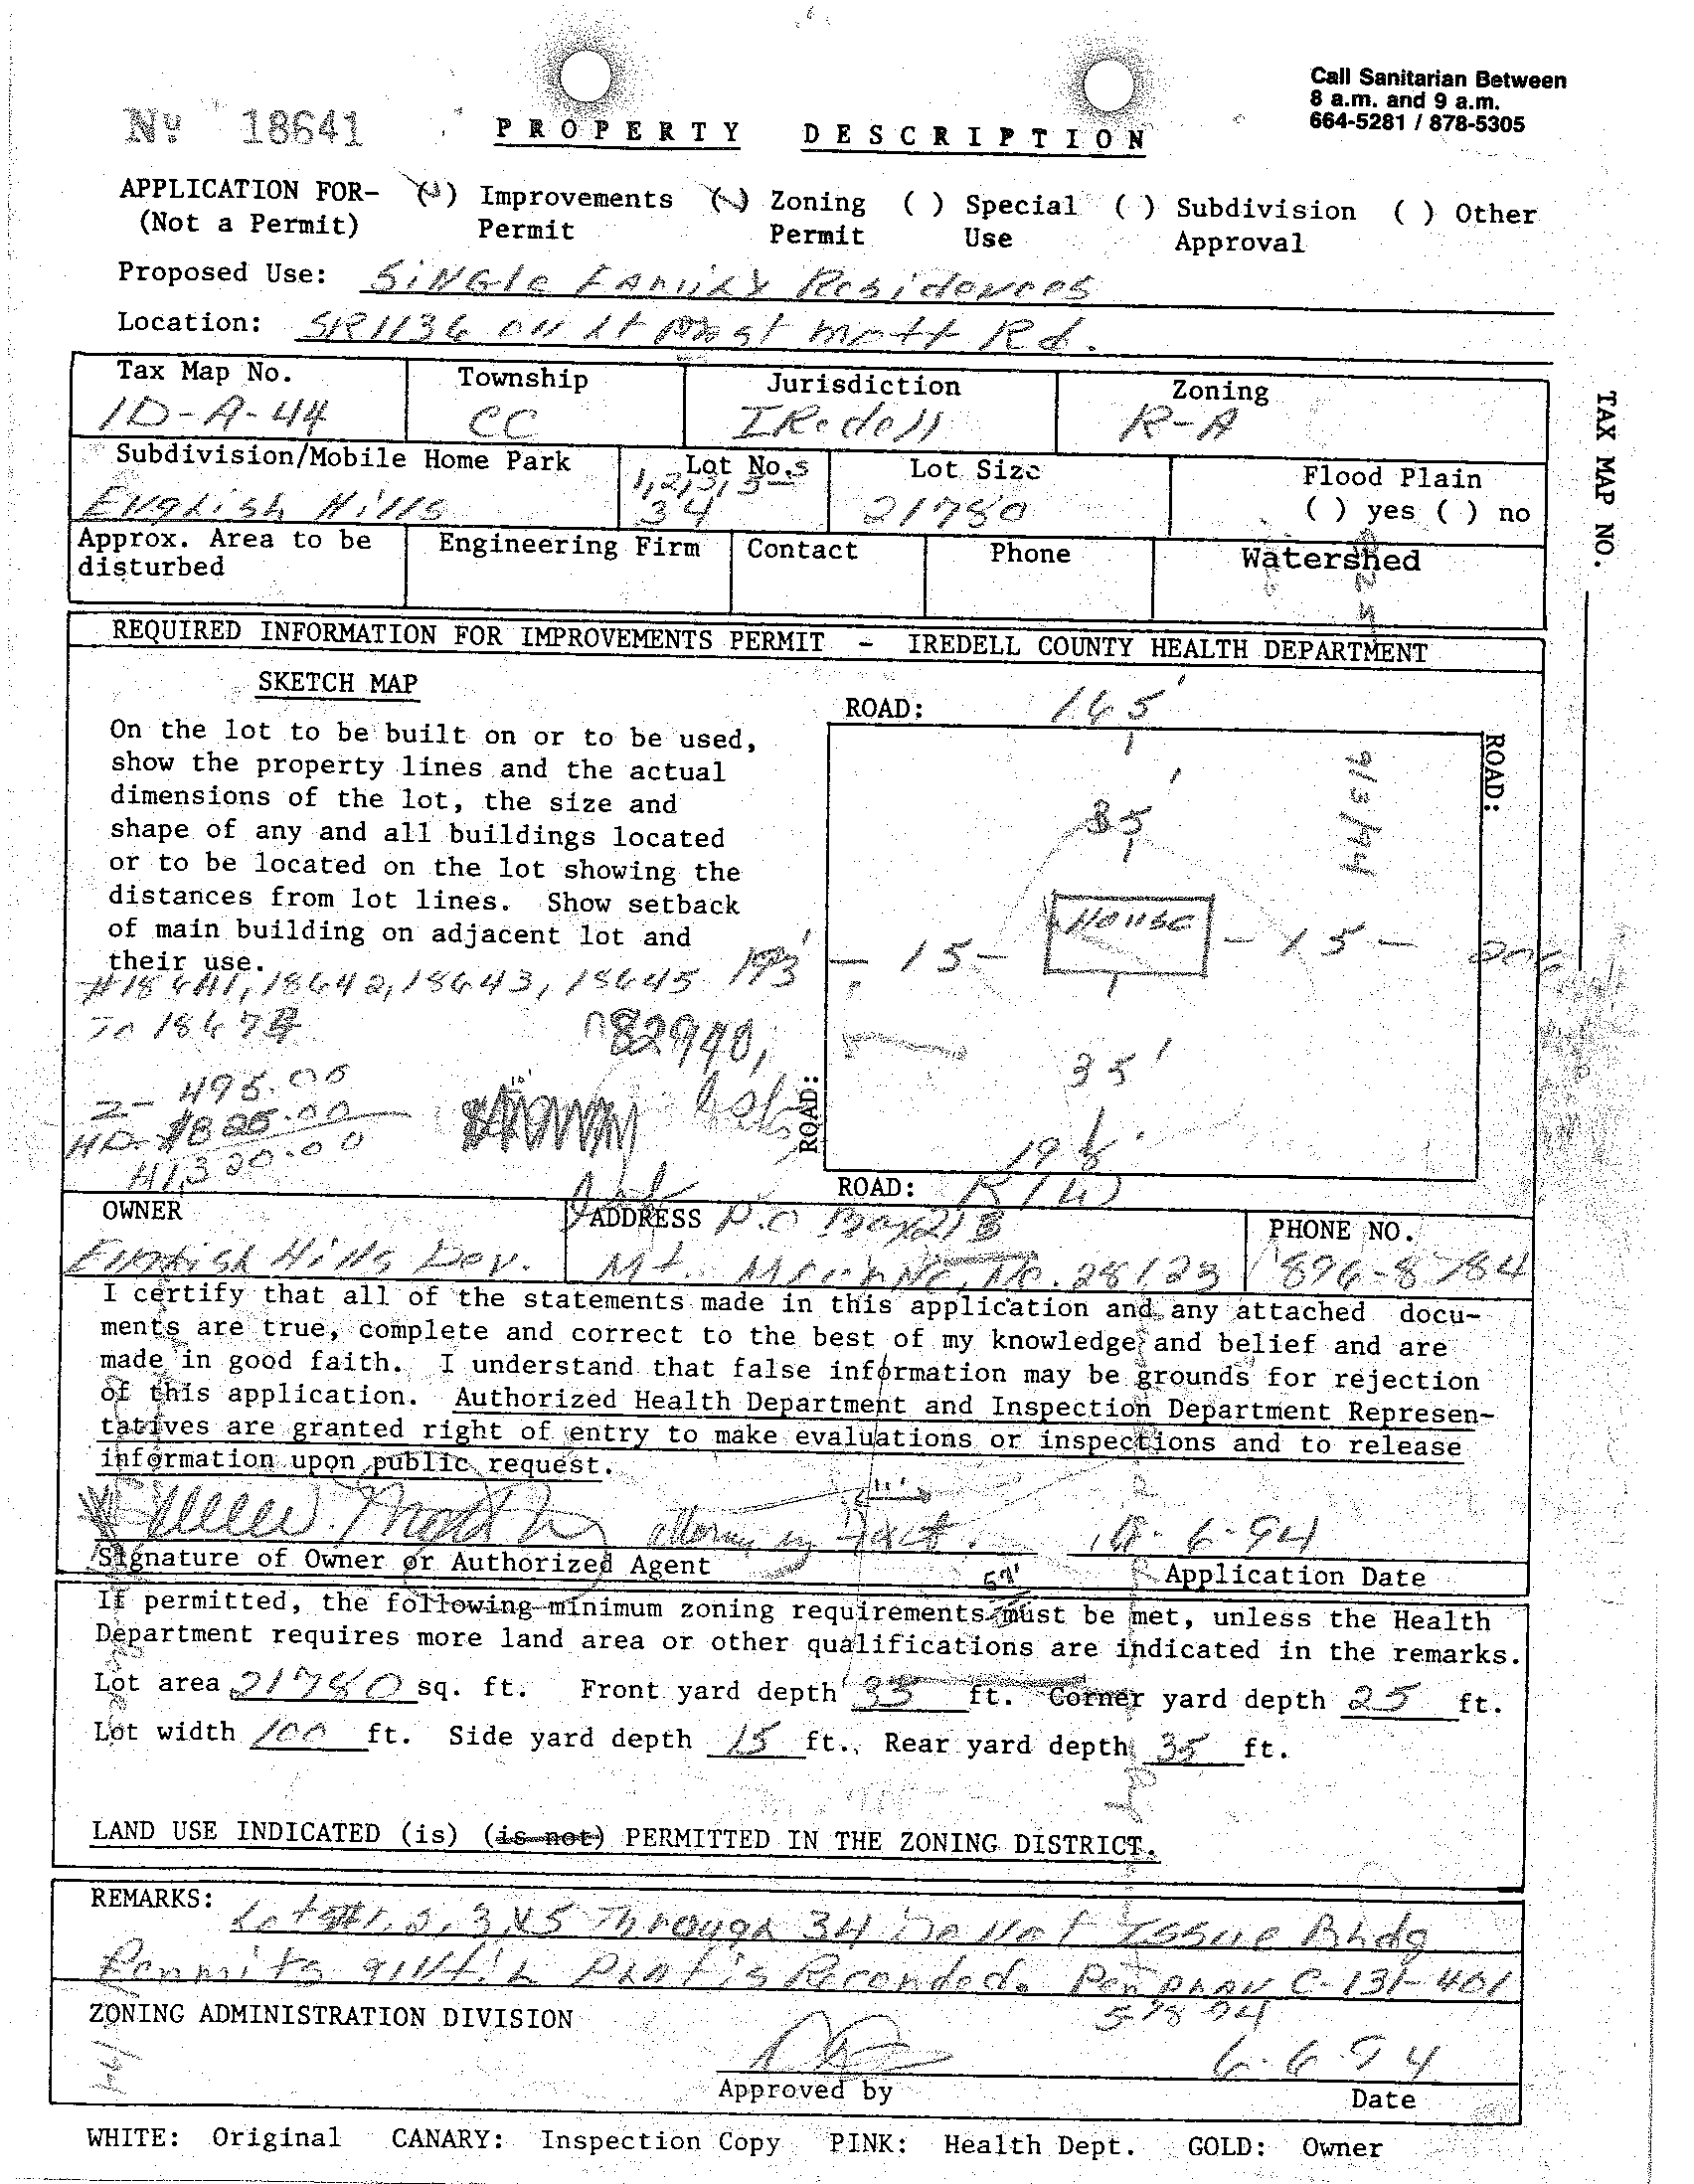 Call Sanitarian Between
8 a.m. and 9 a.m.
664-5281 / 878-5305
Nº 18641
PROPERTY DESCRIPTION
APPLICATION FOR- ( ) Improvements ( ) Zoning ( ) Special ( ) Subdivision ( ) Other
(Not a Permit) Permit Permit Use Approval
Proposed Use: SiNGle FAMiLY Residences
Location: SR1136 on Lt Past Mott Rd.
Tax Map No. Township Jurisdiction Zoning
1D-A-44 CC IRedell R-A
Subdivision/Mobile Home Park Lot No.s Lot Size Flood Plain
English Hills 1,2,3,5- 34 21780 ( ) yes ( ) no
Approx. Area to be disturbed Engineering Firm Contact Phone Watershed
TAX MAP NO.
REQUIRED INFORMATION FOR IMPROVEMENTS PERMIT - IREDELL COUNTY HEALTH DEPARTMENT
SKETCH MAP
On the lot to be built on or to be used,
show the property lines and the actual
dimensions of the lot, the size and
shape of any and all buildings located
or to be located on the lot showing the
distances from lot lines. Show setback
of main building on adjacent lot and
their use.
#18641, 18642, 18643, 18645
To 1867
82940,
2- 495.00
$825.00
$1,320.00
ROAD: 165'
ROAD:
85'
House
193' - 15 - - 15 -
35'
ROAD:
ROAD: R/W
OWNER ADDRESS P.O Box 21B PHONE NO.
English Hills Dev. Mt. Mourne, NC. 28123 896-8784
I certify that all of the statements made in this application and any attached docu-
ments are true, complete and correct to the best of my knowledge and belief and are
made in good faith. I understand that false information may be grounds for rejection
of this application. Authorized Health Department and Inspection Department Represen-
tatives are granted right of entry to make evaluations or inspections and to release
information upon public request.
attorney in fact 6-94
Signature of Owner or Authorized Agent Application Date
If permitted, the following minimum zoning requirements must be met, unless the Health
Department requires more land area or other qualifications are indicated in the remarks.
Lot area 21780 sq. ft. Front yard depth 35 ft. Corner yard depth 25 ft.
Lot width 100 ft. Side yard depth 15 ft., Rear yard depth 35 ft.
LAND USE INDICATED (is) (is not) PERMITTED IN THE ZONING DISTRICT.
REMARKS: Lots #1, 2, 3 & 5 Through 34 Do Not Issue Bldg
Permits until Plat is Recorded. Per Plan C-131-401
ZONING ADMINISTRATION DIVISION
6-6-94
Approved by Date
WHITE: Original CANARY: Inspection Copy PINK: Health Dept. GOLD: Owner